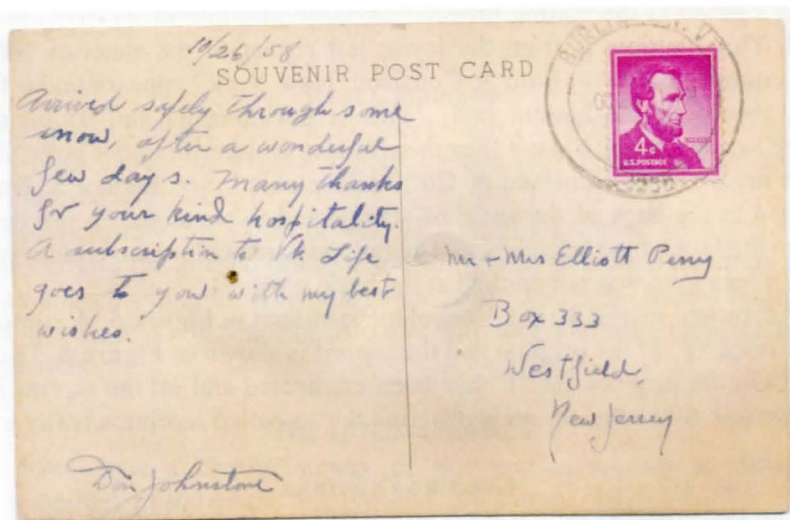 10/26/58
SOUVENIR POST CARD
Arrived safely through some
snow, after a wonderful
few days. Many thanks
for your kind hospitality.
A subscription to Vt. Life
goes to you with my best
wishes.
Don Johnstone
4¢
U.S. POSTAGE
Mr + Mrs Elliott Perry
Box 333
Westfield,
New Jersey